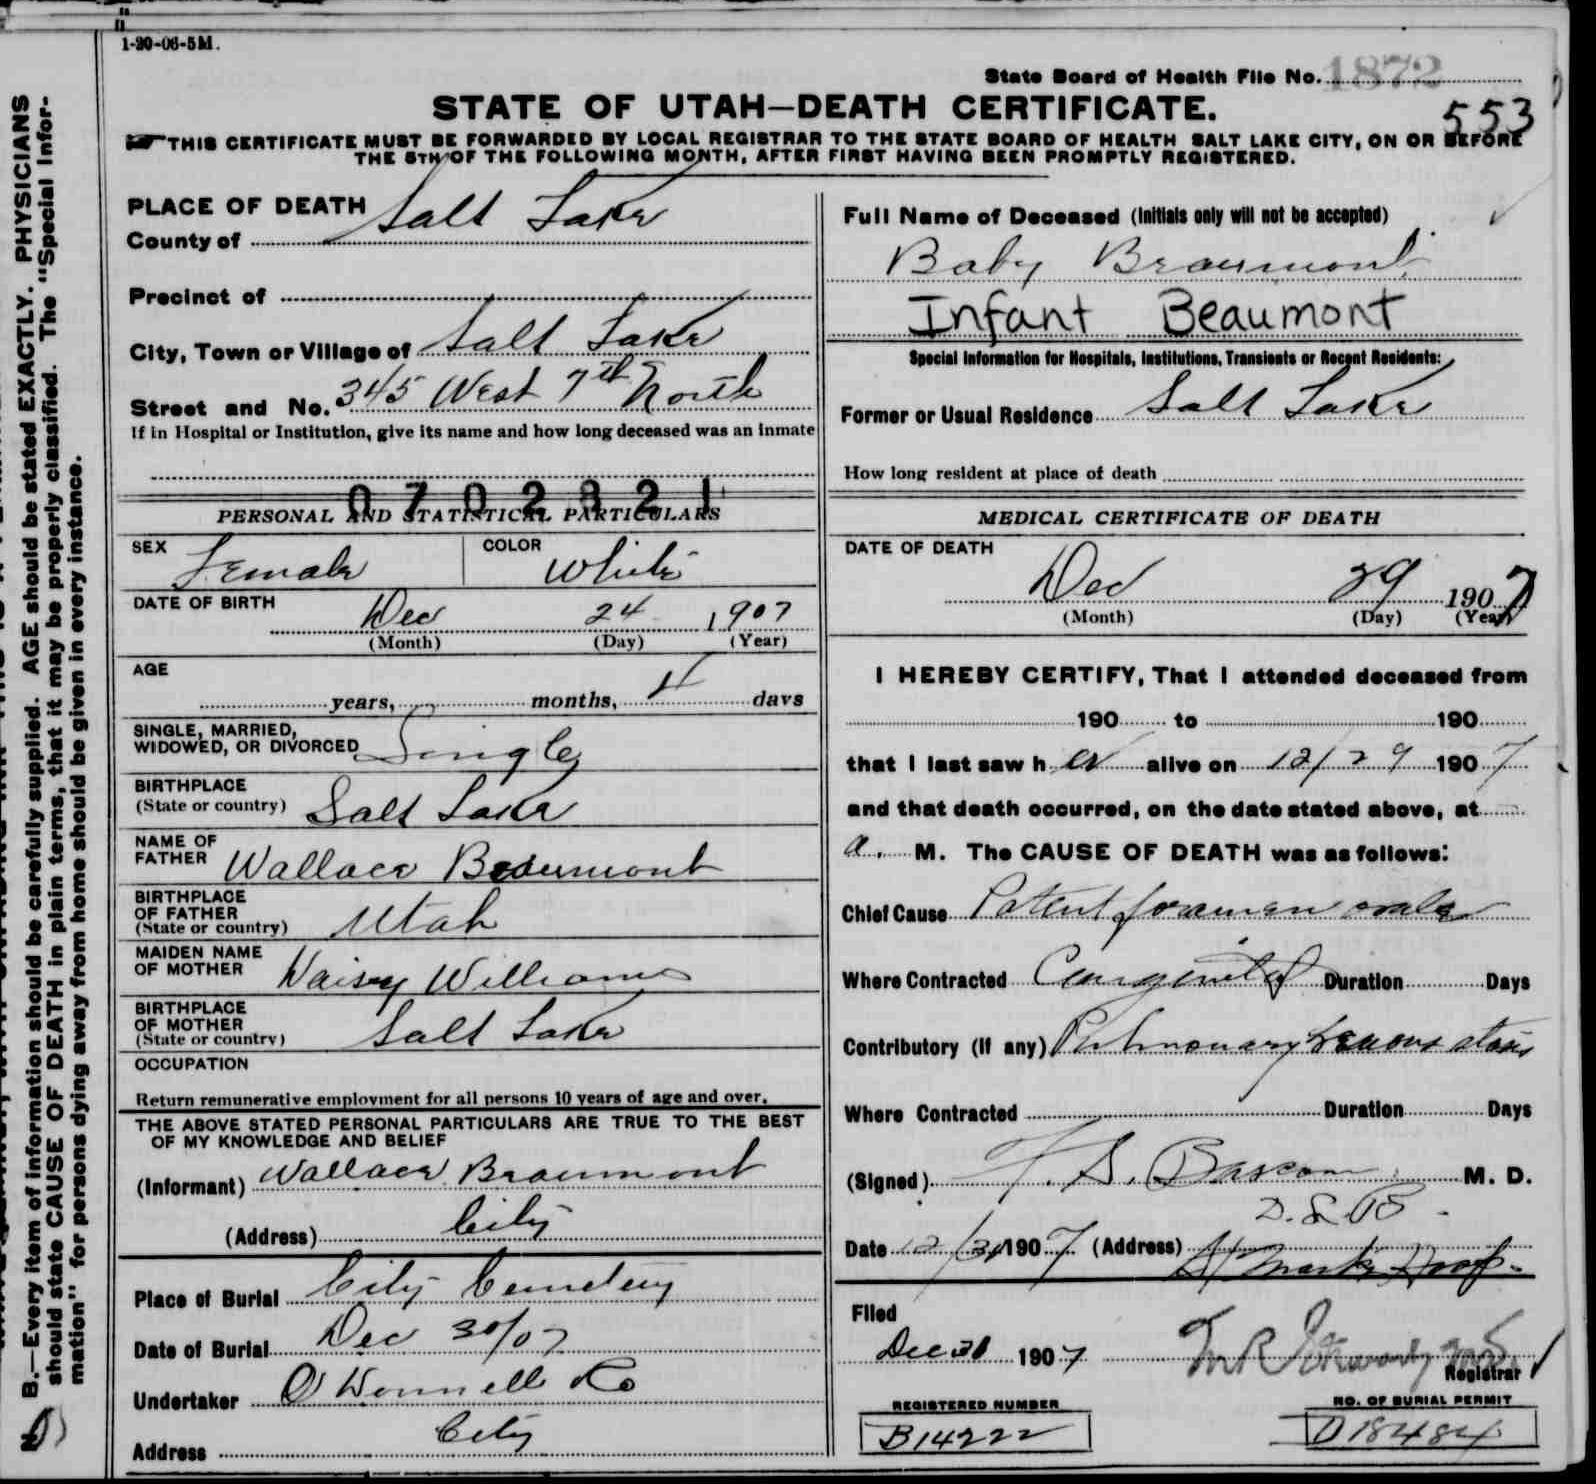 1-20-06-5M.
State Board of Health File No. 1872
553
STATE OF UTAH—DEATH CERTIFICATE.
THIS CERTIFICATE MUST BE FORWARDED BY LOCAL REGISTRAR TO THE STATE BOARD OF HEALTH SALT LAKE CITY, ON OR BEFORE
THE 5TH OF THE FOLLOWING MONTH, AFTER FIRST HAVING BEEN PROMPTLY REGISTERED.
PLACE OF DEATH
County of Salt Lake
Precinct of
City, Town or Village of Salt Lake
Street and No. 345 West 7th North
If in Hospital or Institution, give its name and how long deceased was an inmate
0702321
PERSONAL AND STATISTICAL PARTICULARS
SEX Female COLOR White
DATE OF BIRTH Dec 24 1907
(Month) (Day) (Year)
AGE
years, months, 4 days
SINGLE, MARRIED,
WIDOWED, OR DIVORCED Single
BIRTHPLACE
(State or country) Salt Lake
NAME OF
FATHER Wallace Beaumont
BIRTHPLACE
OF FATHER
(State or country) Utah
MAIDEN NAME
OF MOTHER Daisey Williams
BIRTHPLACE
OF MOTHER
(State or country) Salt Lake
OCCUPATION
Return remunerative employment for all persons 10 years of age and over.
THE ABOVE STATED PERSONAL PARTICULARS ARE TRUE TO THE BEST
OF MY KNOWLEDGE AND BELIEF
(Informant) Wallace Beaumont
(Address) City
Place of Burial City Cemetery
Date of Burial Dec 30/07
Undertaker O'Donnell Co
Address City
Full Name of Deceased (Initials only will not be accepted)
Baby Beaumont
Infant Beaumont
Special Information for Hospitals, Institutions, Transients or Recent Residents:
Former or Usual Residence Salt Lake
How long resident at place of death
MEDICAL CERTIFICATE OF DEATH
DATE OF DEATH
Dec 29 1907
(Month) (Day) (Year)
I HEREBY CERTIFY, That I attended deceased from
190 to 190
that I last saw her alive on 12/29 1907
and that death occurred, on the date stated above, at
a. M. The CAUSE OF DEATH was as follows:
Chief Cause Patent foramen ovale
Where Contracted Congenital Duration Days
Contributory (If any) Pulmonary & venous stasis
Where Contracted Duration Days
(Signed) F. S. Bascom M. D.
D. S. B.
Date 12/31 1907 (Address) St Marks Hosp.
Filed
Dec 31 1907
Registrar
REGISTERED NUMBER
B14222
NO. OF BURIAL PERMIT
D18484
N. B.—Every item of information should be carefully supplied. AGE should be stated EXACTLY. PHYSICIANS
should state CAUSE OF DEATH in plain terms, that it may be properly classified. The "Special Infor-
mation" for persons dying away from home should be given in every instance.